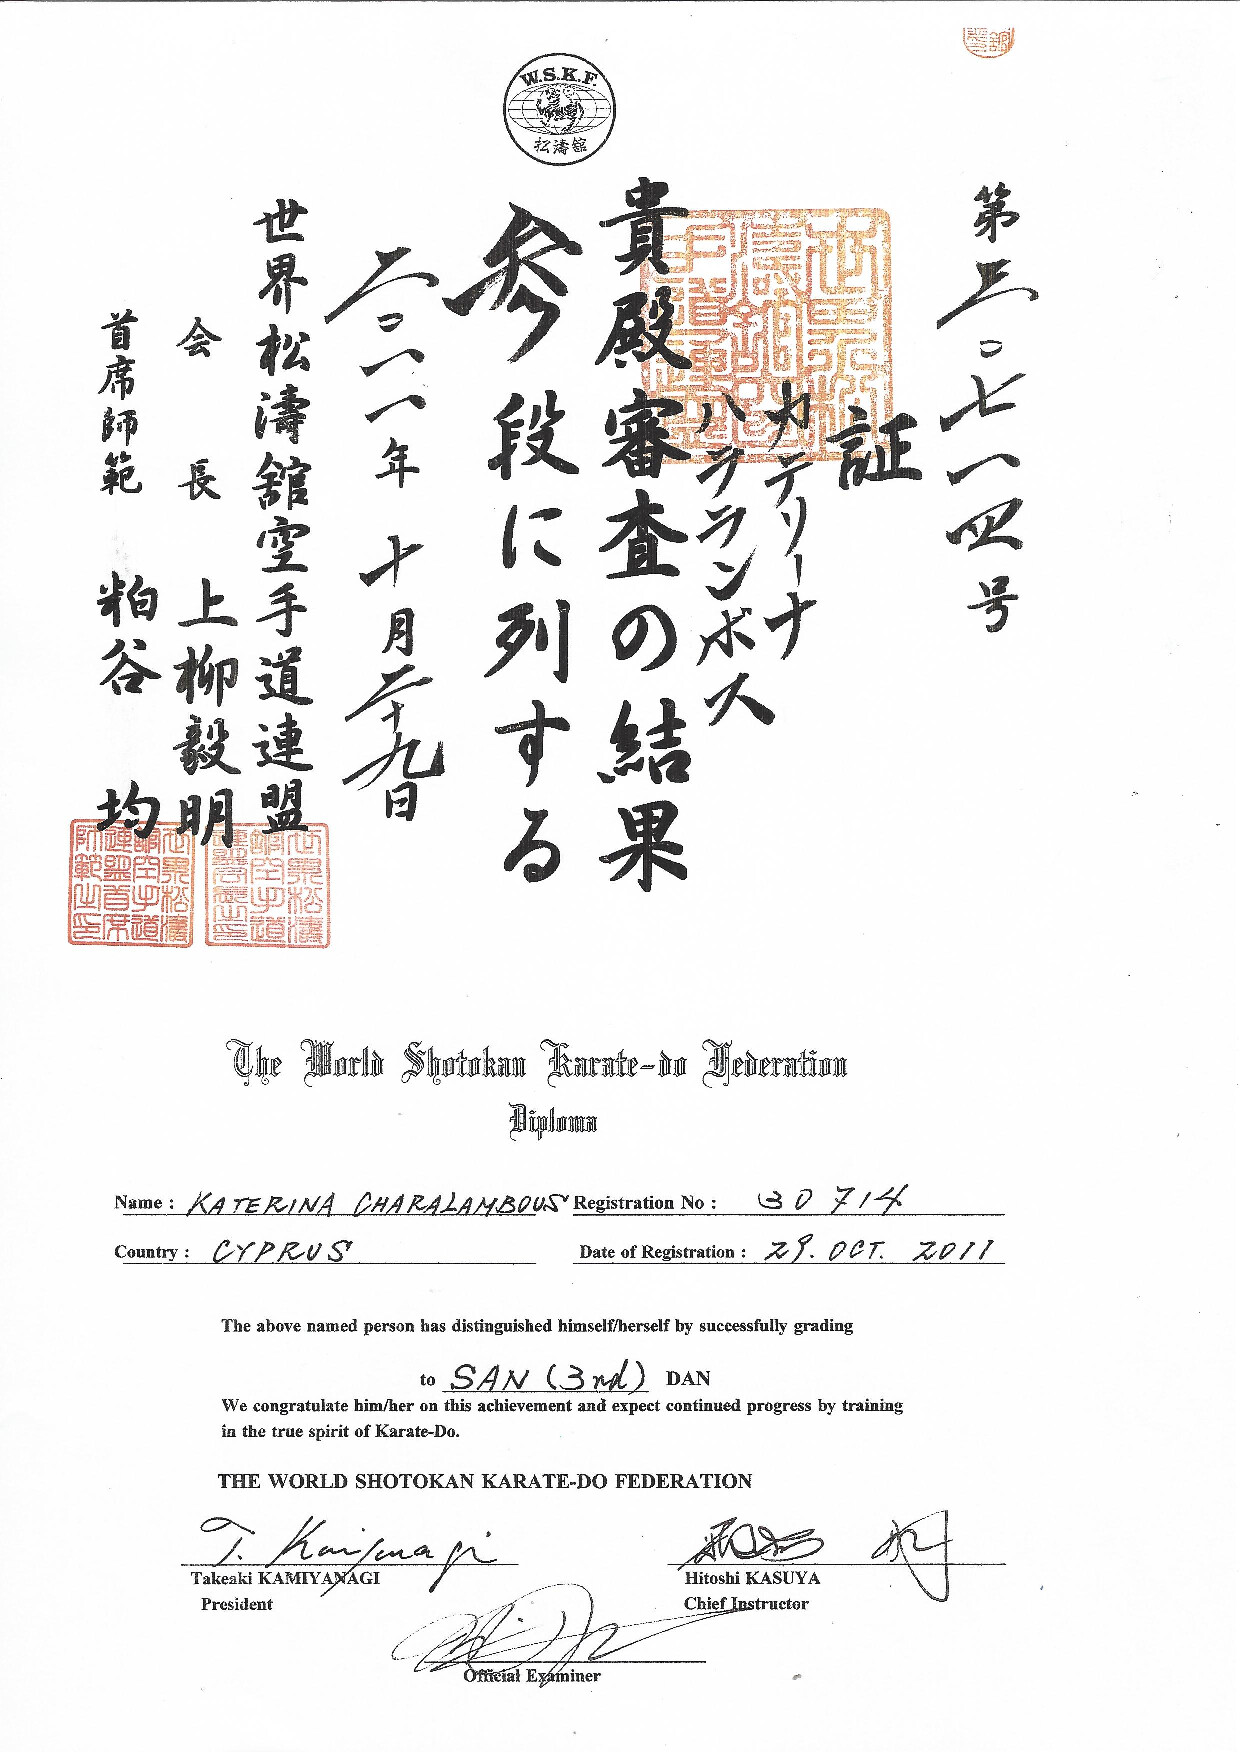 W.S.K.F.
松濤舘
第三〇七一四号
証
カテリーナ
ハラランボス
貴殿審査の結果
参段に列する
二〇一一年十月二十九日
世界松濤舘空手道連盟
会長 上柳毅明
首席師範 粕谷均
The World Shotokan Karate-do Federation
Diploma
Name : KATERINA CHARALAMBOUS Registration No : 30714
Country : CYPRUS Date of Registration : 29. OCT. 2011
The above named person has distinguished himself/herself by successfully grading
to SAN (3rd) DAN
We congratulate him/her on this achievement and expect continued progress by training
in the true spirit of Karate-Do.
THE WORLD SHOTOKAN KARATE-DO FEDERATION
T. Kamiyanagi
Takeaki KAMIYANAGI Hitoshi KASUYA
President Chief Instructor
Official Examiner